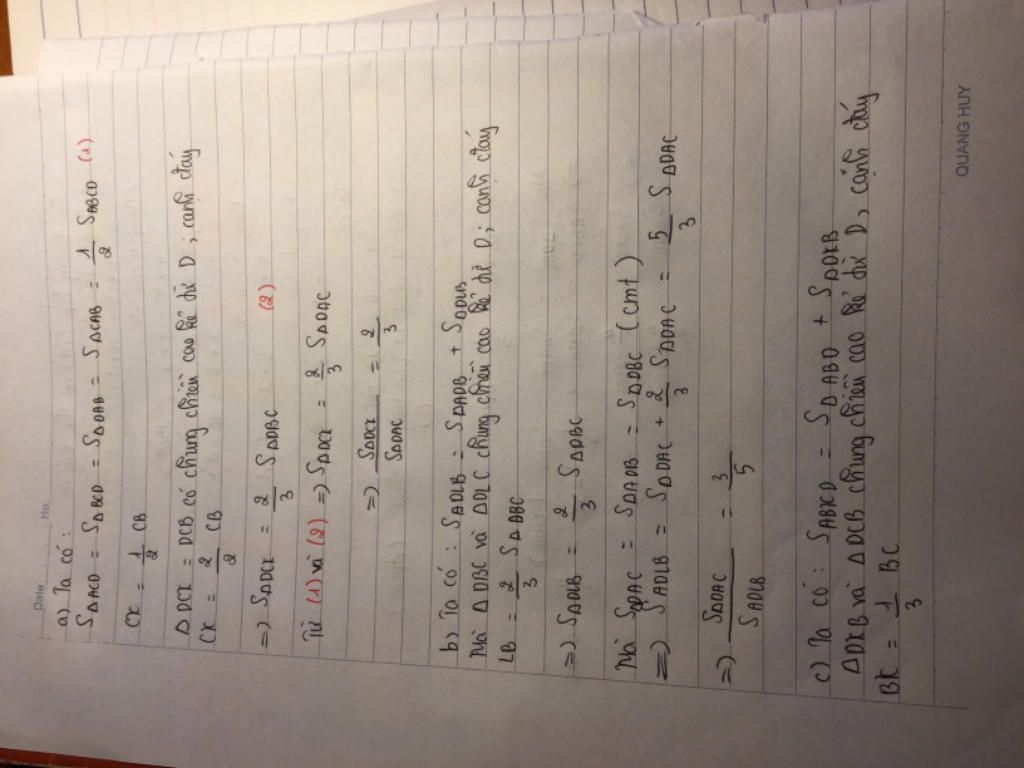 Date No.
a) Ta có:
SΔACD = SΔBCD = SΔDAB = SΔCAB = 1/2 SABCD (1)
CK = 1/2 CB
ΔDCK = DCB có chung chiều cao kẻ từ D; cạnh đáy
CK = 2/2 CB
=) SΔDCK = 2/3 SΔDBC (2)
Từ (1) và (2) =) SΔDCK = 2/3 SΔDAC
=) SΔDCK / SΔDAC = 2/3
b) Ta có: SΔDLB = SΔADB + SΔDLB
Mà ΔDBC và ΔDLC chung chiều cao kẻ từ D; cạnh đáy
LB = 2/3 SΔABC
=) SΔDLB = 2/3 SΔDBC
Mà SΔDAC = SΔDAB = SΔDBC (cmt)
=) SADLB = SΔDAC + 2/3 SΔDAC = 5/3 SΔDAC
=) SΔDAC / SADLB = 3/5
c) Ta có: SABKD = SΔABD + SΔDKB
ΔDKB và ΔDCB chung chiều cao kẻ từ D, cạnh đáy
BK = 1/3 BC
QUANG HUY